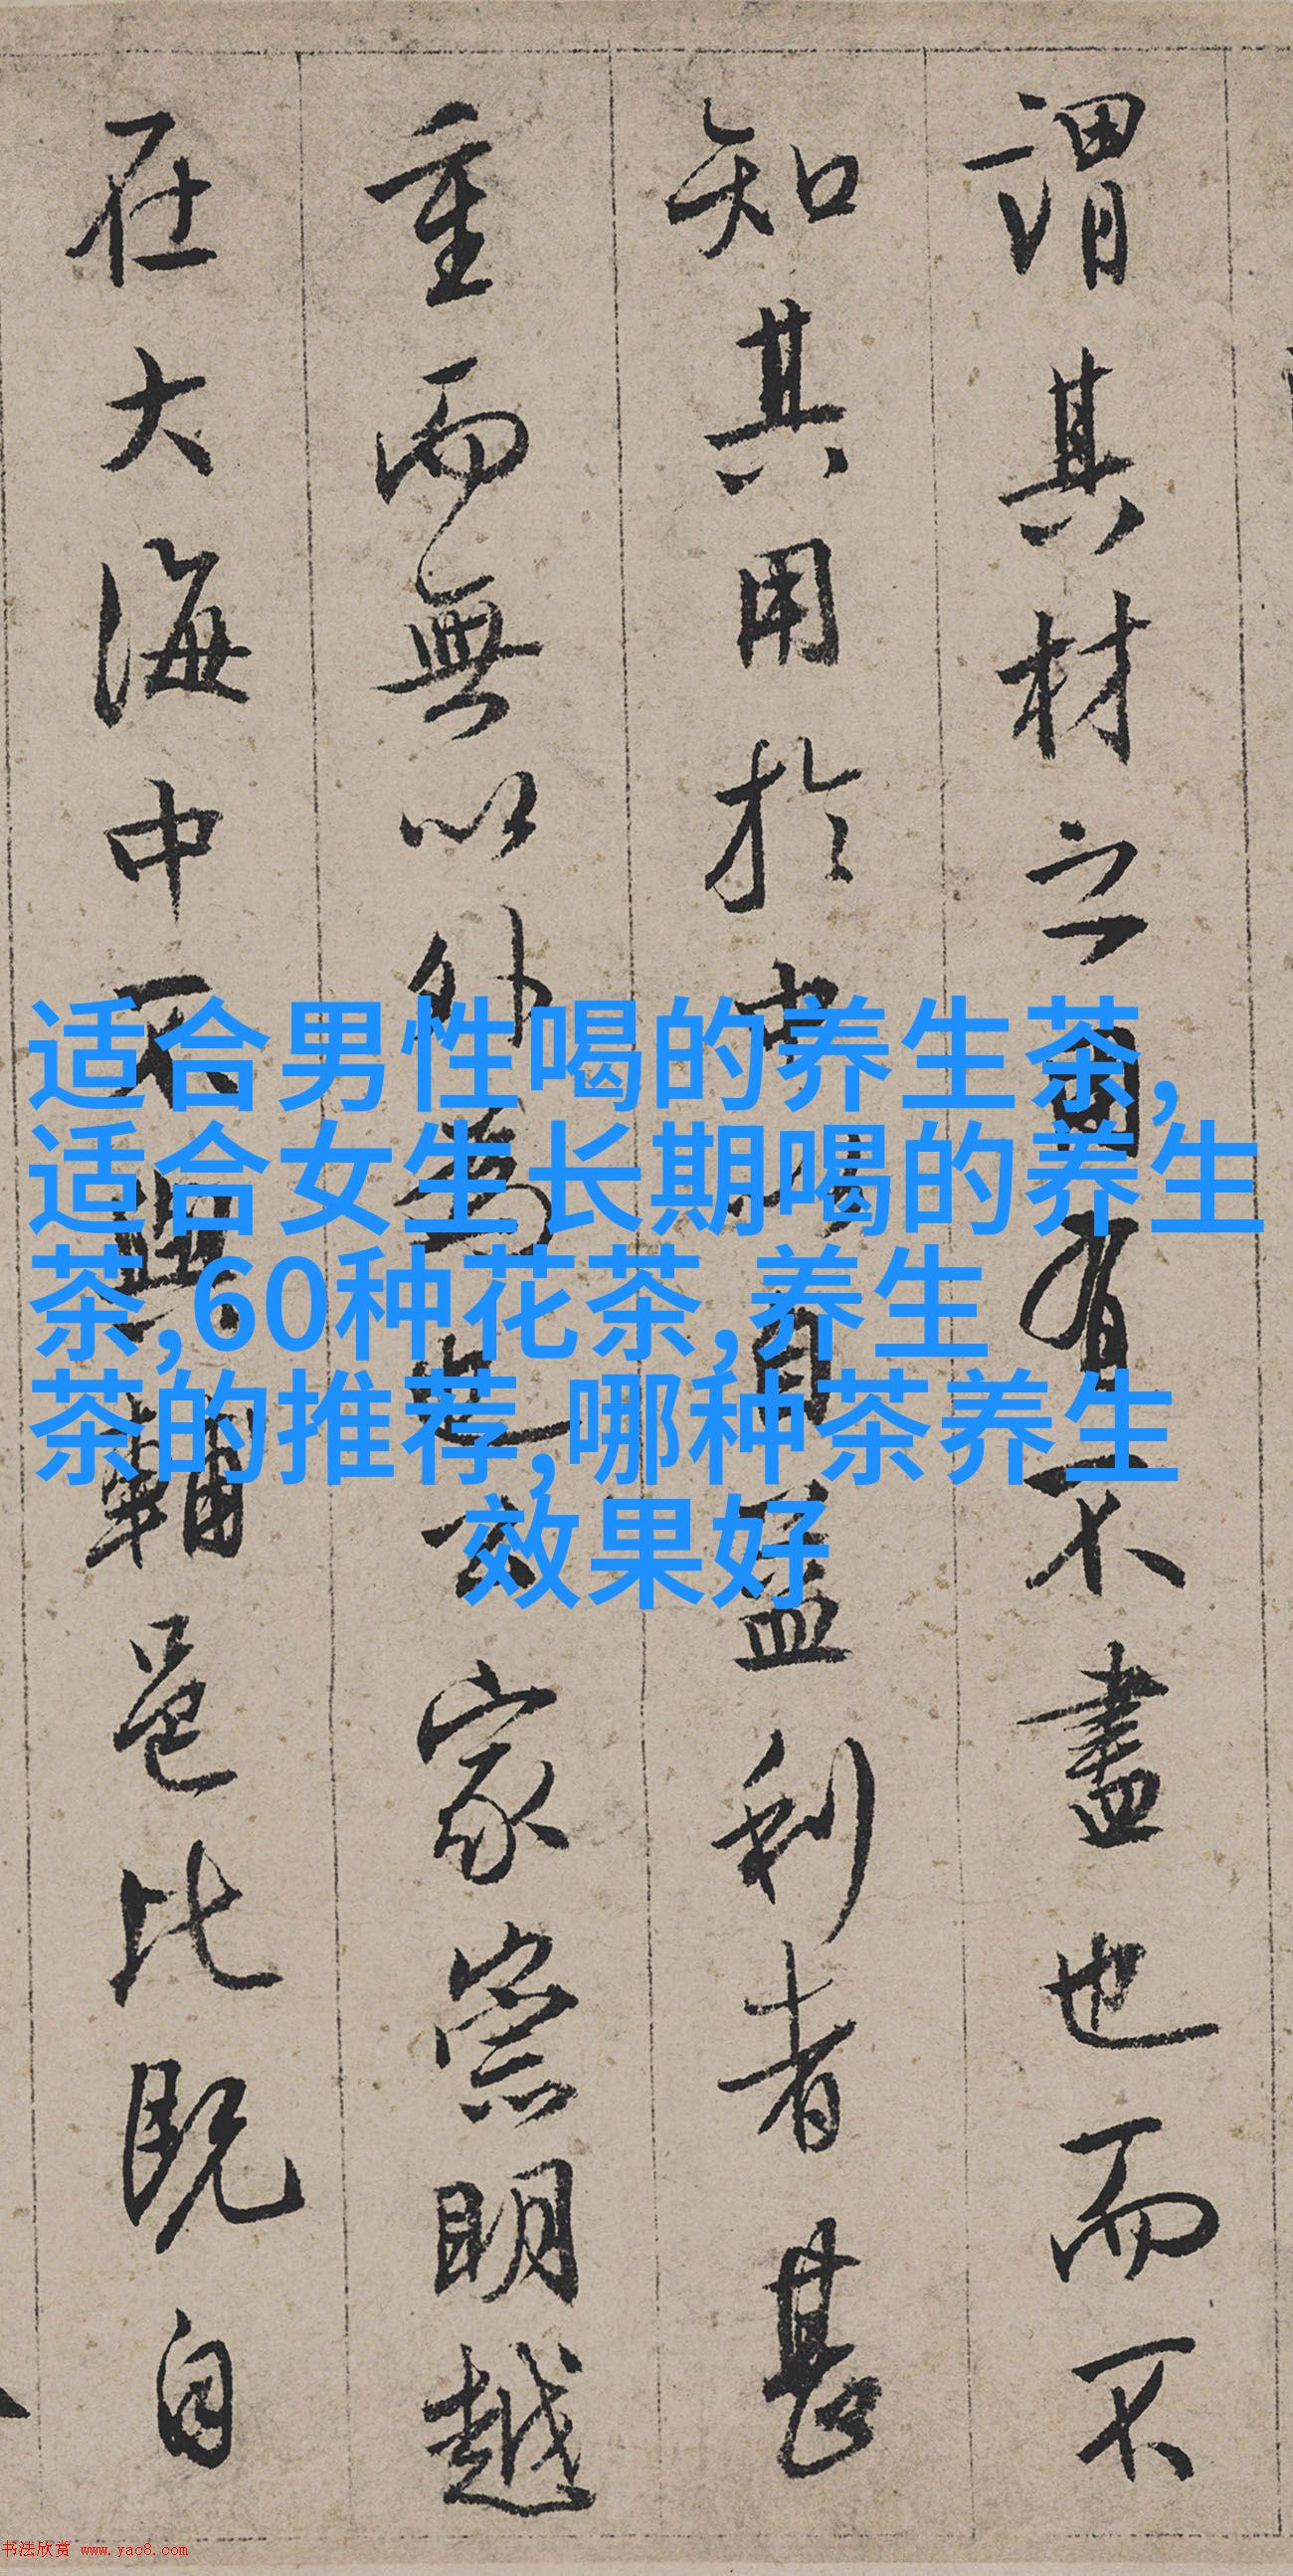 謂其材之用有不盡也而不
知其用於益利者甚
重而無以外為家崇明越
在大海中不與輔邑比既自
适合男性喝的养生茶,
适合女生长期喝的养生
茶,60种花茶,养生
茶的推荐,哪种茶养生
效果好
书法欣赏 www.yac8.com